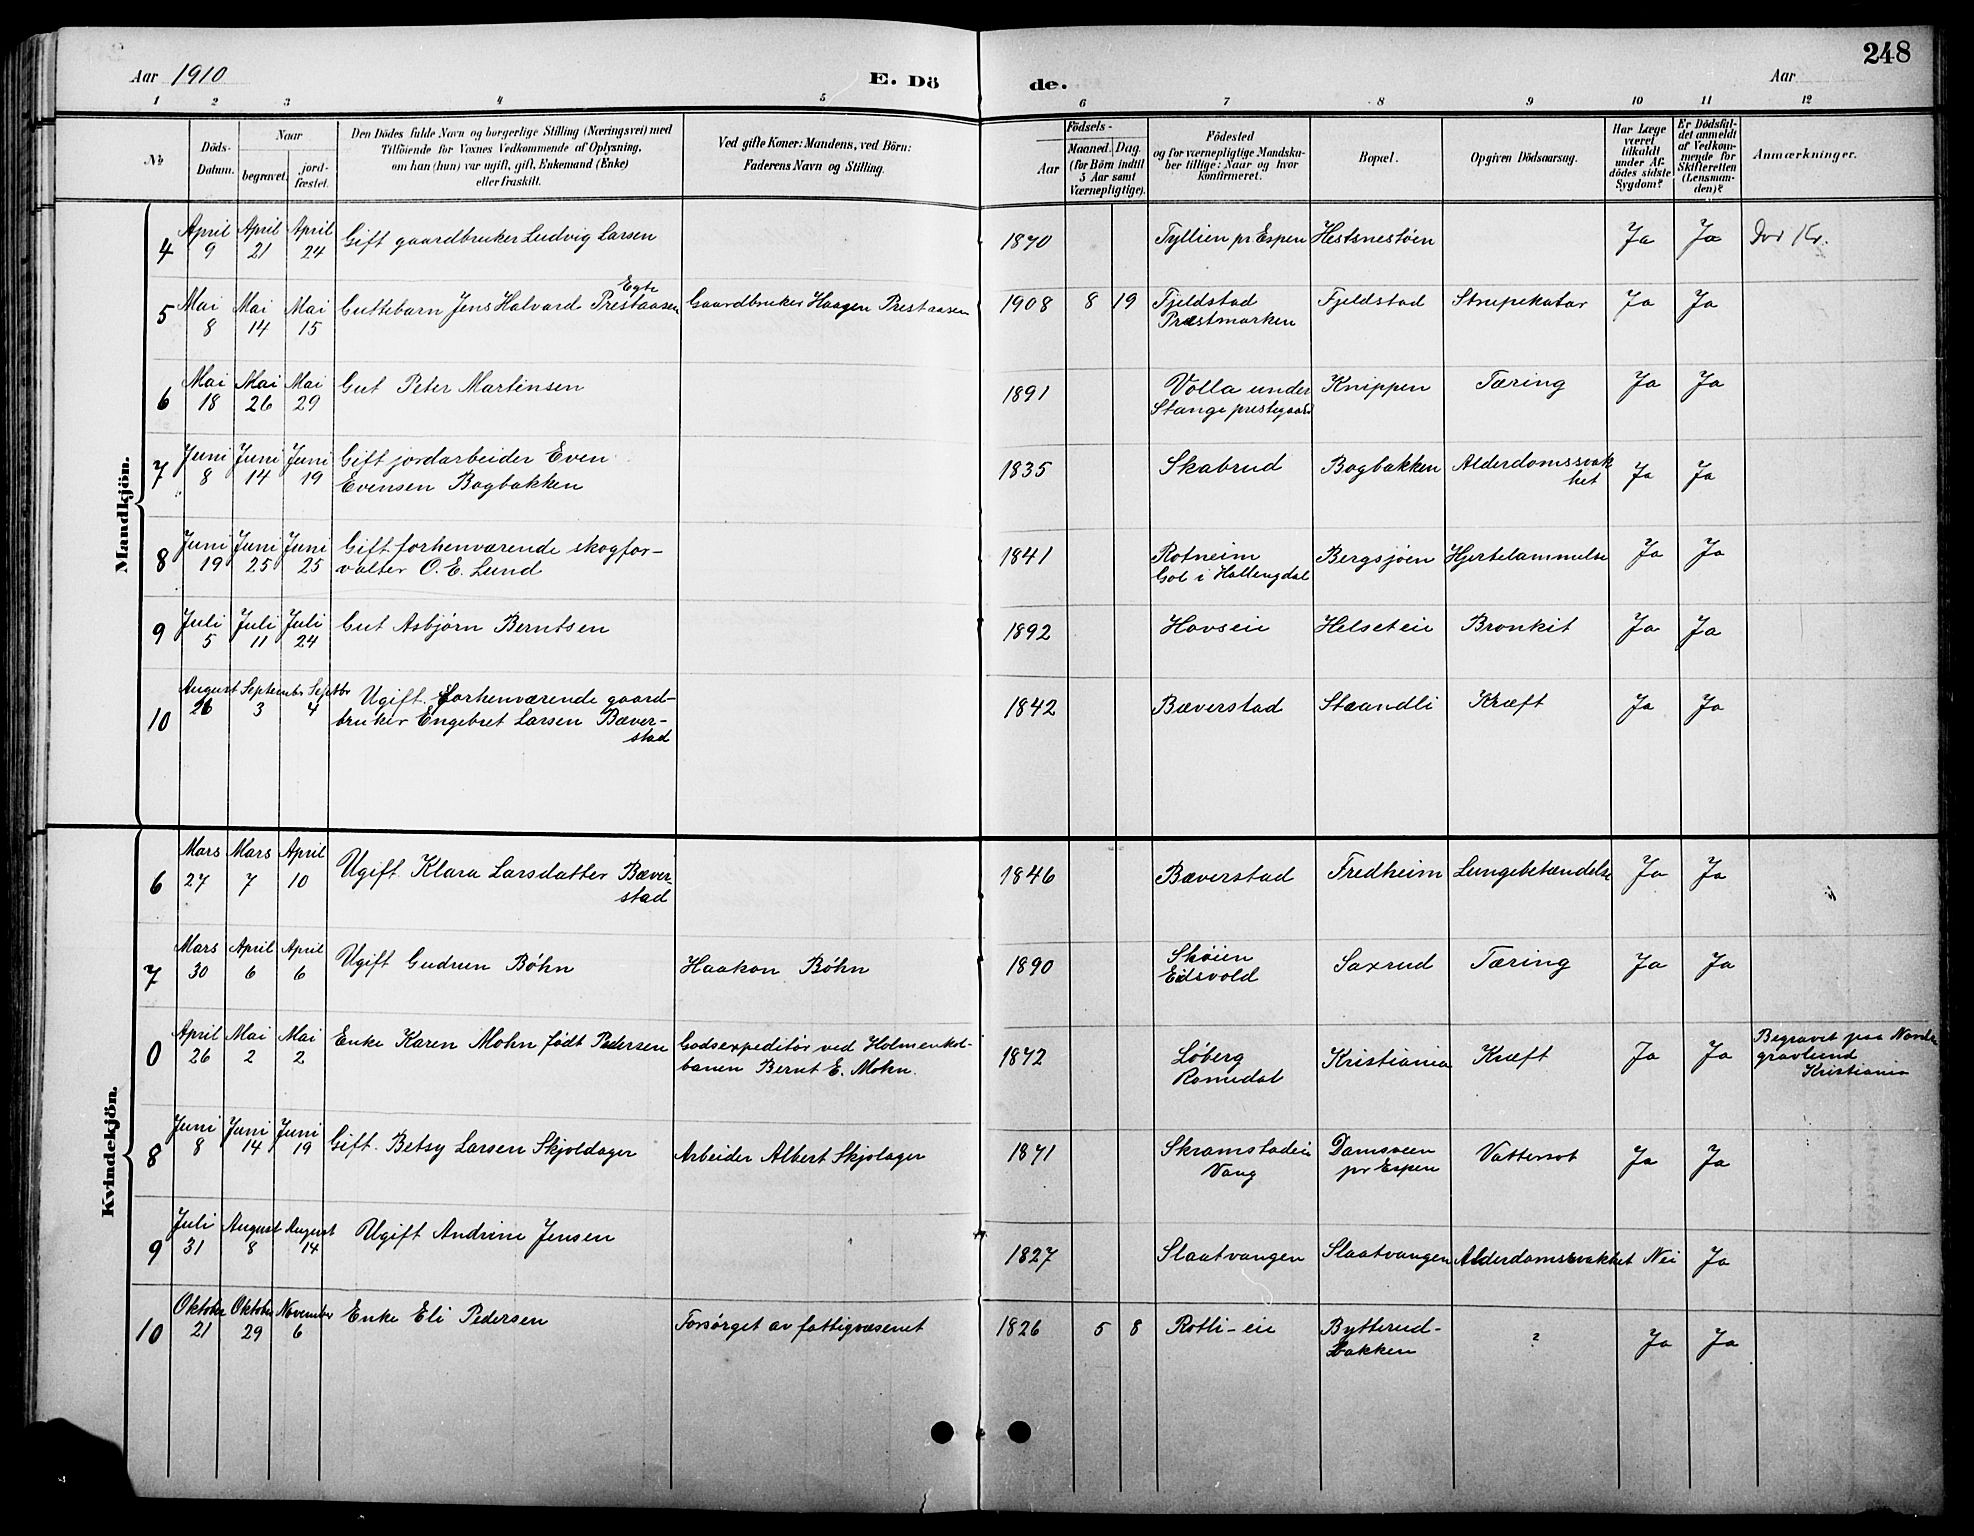 248
Aar 1910
E. Dö
de.
Aar
1 2 3 4 5 6 7 8 9 10 11 12
No
Döds-
Datum.
Naar
begravet.
jord-
fæstet.
Den Dödes fulde Navn og borgerlige Stilling (Næringsvei) med
Tilföiende for Voxnes Vedkommende af Oplysning,
om han (hun) var ugift, gift, Enkemand (Enke)
eller fraskilt.
Ved gifte Koner: Mandens, ved Börn:
Faderens Navn og Stilling.
Födsels-
Aar
Maaned. Dag.
(for Börn indtil
5 Aar samt
Værnepligtige).
Födested
og for værnepligtige Mandska-
ber tillige: Naar og hvor
konfirmeret.
Bopæl.
Opgiven Dödsaarsag.
Har Læge
været
tilkaldt
under Af-
dödes sidste
Sygdom?
Er Dödsfal-
det anmeldt
af Vedkom-
mende for
Skifteretten
(Lensman-
den)?
Anmærkninger.
Mandkjön.
4 April 9 April 21 April 24 Gift gaardbruker Ludvig Larsen 1870 Tyllien pr Espen Hestsnestöen Ja Ja
Egte
5 Mai 8 Mai 14 Mai 15 Guttebarn Jens Halvard Prestaasen Gaardbruker Haagen Prestaasen 1908 8 19 Fjeldstad Fjeldstad Strupekatar Ja Ja
Præstmarken
6 Mai 18 Mai 26 Mai 29 Gut Peter Martinsen 1891 Volla under Knippen Tæring Ja Ja
Stange prestegaard
7 Juni 8 Juni 14 Juni 19 Gift jordarbeider Even 1835 Skabrud Bagbakken Alderdomssvak
Evensen Bagbakken het Ja Ja
8 Juni 19 Juni 25 Juni 25 Gift forhenværende skogfor- 1841 Rotneim Bergsjøen Hjertelammelse Ja Ja
valter O. E. Lund Gol i Hallingdal
9 Juli 5 Juli 11 Juli 24 Gut Asbjørn Berntsen 1892 Hovseie Helseteie Bronkit Ja Ja
10 August 26 September 3 Septbr 4 Ugift. Forhenværende gaard- 1842 Bæverstad Staandli Kræft Ja Ja
bruker Engebret Larsen Bæver-
stad
Kvindekjön.
6 Mars 27 Mars 7 April 10 Ugift Klara Larsdatter Bæver- 1846 Bæverstad Fredheim Lungebetændelse Ja Ja
stad
7 Mars 30 April 6 April 6 Ugift Gudrun Bøhn Haakon Bøhn 1890 Skøien Saxrud Tæring Ja Ja
Eidsvold
0 April 26 Mai 2 Mai 2 Enke Karen Mohn født Pedersen Godsexpeditør ved Holmenkol- 1872 Løberg Kristiania Kræft Ja Ja Begravet paa Nordre
banen Bernt E. Mohn. Romedal gravlund
Kristiania
8 Juni 8 Juni 14 Juni 19 Gift. Betsy Larsen Skjoldager Arbeider Albert Skjolager 1871 Skramstadeie Damsveen Vattersot Ja Ja
Vang pr Espen
9 Juli 31 August 8 August 14 Ugift Andrine Jensen 1827 Slaatvangen Slaatvangen Alderdomssvakhet Nei Ja
10 Oktober 21 Oktober 29 November 6 Enke Eli Pedersen Forsørget av fattigvæsenet 1826 5 8 Rotli-eie Bytterud- ? Ja Ja
bakken